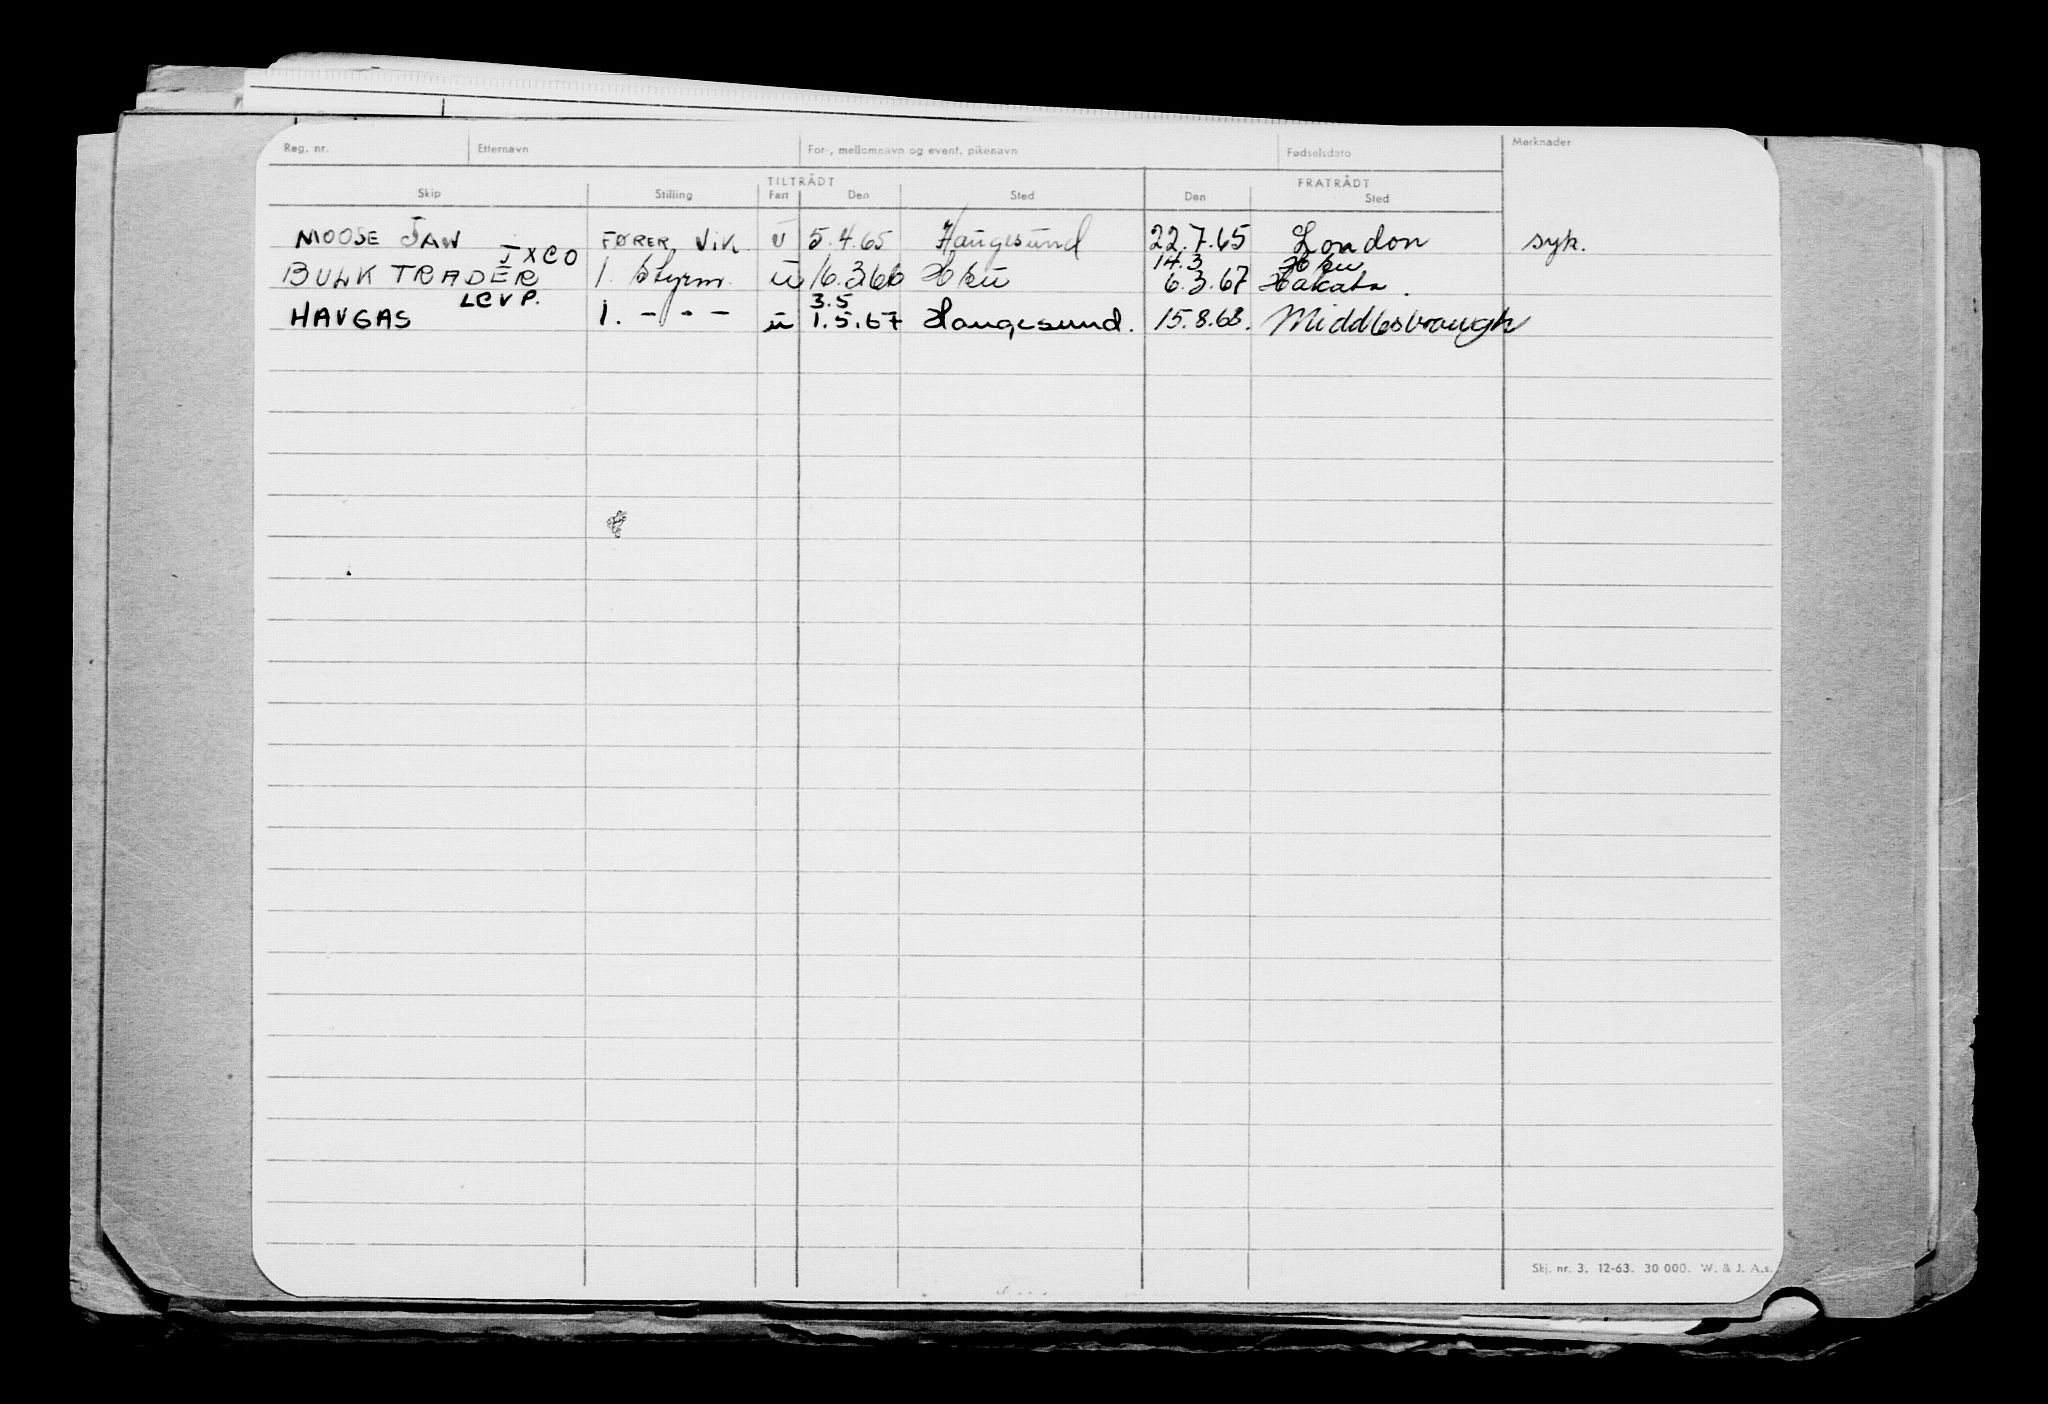 Reg. nr. Etternavn For-, mellomnavn og event. pikenavn Fødselsdato Merknader
TILTRÅDT FRATRÅDT
Skip Stilling Fart Den Sted Den Sted
MOOSE JAW FØRER, VIK. U 5.4.65 Haugesund 22.7.65 London syk.
JXCO 14.3 Hsu
BULK TRADER 1. Styrm. u 16.3.66 Hsu 6.3.67 Hakata.
LCVP. 3.5
HAVGAS 1. - - - u 1.5.67 Haugesund. 15.8.68. Middlesbrough
Skj. nr. 3. 12-63. 30 000. W. & J. A.s.